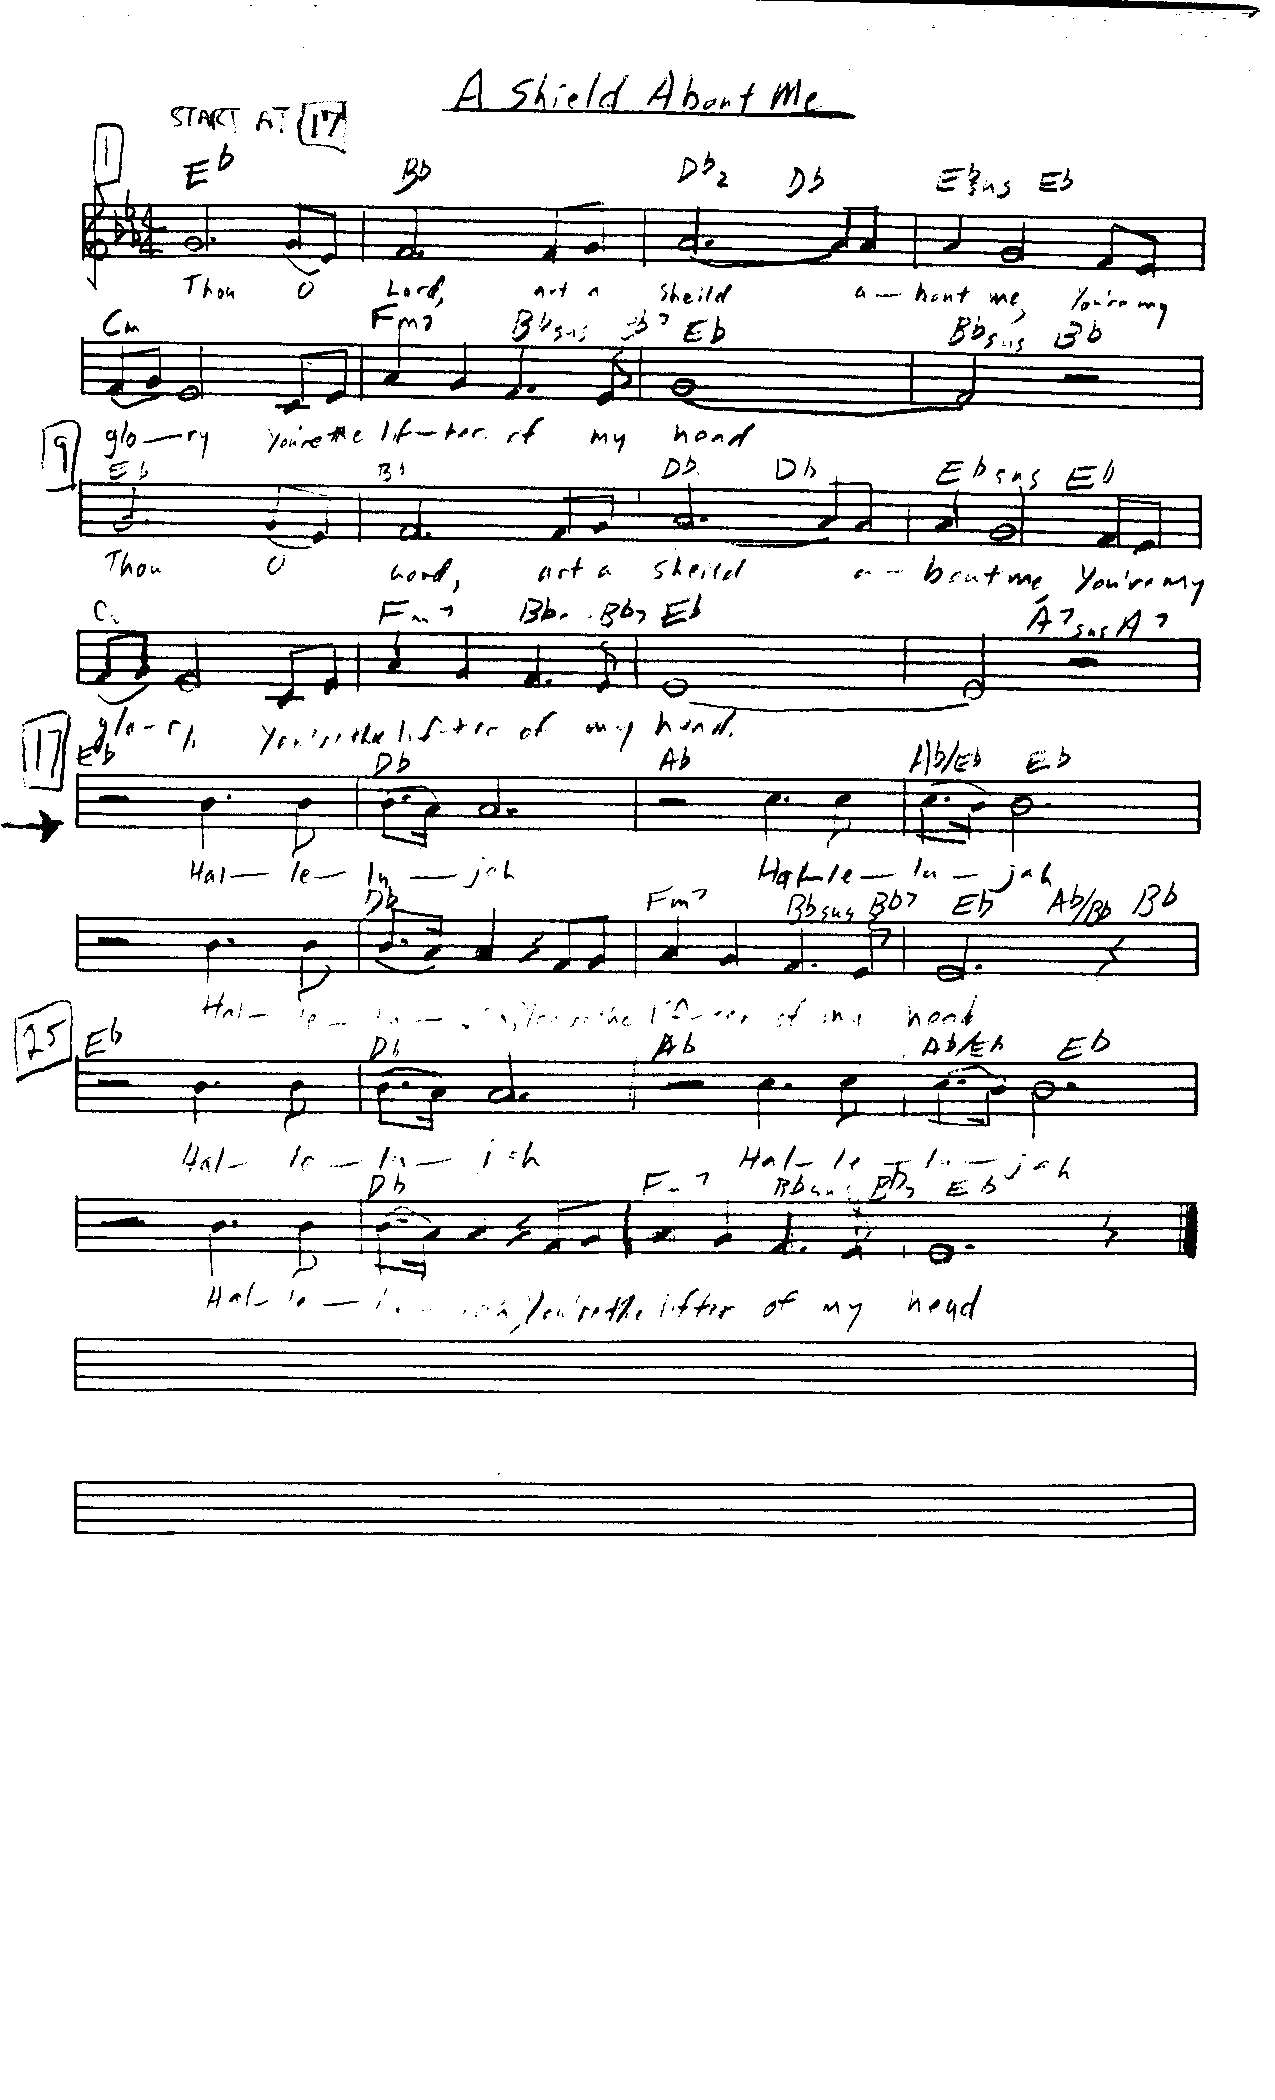 A Shield About Me
START AT 17
1
Eb Bb Db2 Db Ebsus Eb
4
4
Thou O Lord, art a Sheild a-bout me, You're my
Cm Fm7 Bbsus Bb7 Eb Bbsus Bb
glo-ry You're the lif-ter of my head
9
Eb Bb Db Db Ebsus Eb
Thou O Lord, art a sheild a-bout me You're my
Fm7 Bb7 Eb A7sus A7
glo-ry You're the lif-ter of my head.
17
Eb Db Ab Ab/Eb Eb
Hal-le-lu-jah Hal-le-lu-jah
Db Fm7 Bbsus Bb7 Eb Ab/Bb Bb
Hal-le-lu- You're the lifter of my head
25
Eb Db Ab Ab/Eb Eb
Hal-le-lu-jah Hal-le-lu-jah
Db Fm7 Bbsus Bb7 Eb
Hal-le- You're the lifter of my head